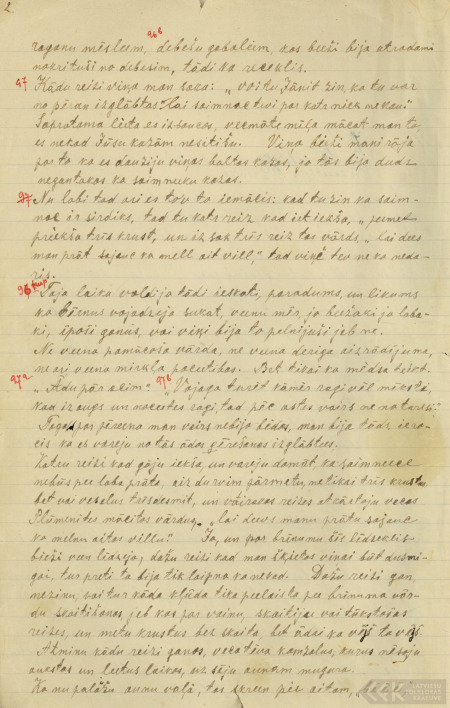 2.
96b
raganu mēsleem, debešu gabaleem, kas bieži bija atradami
nokrituši no debesim, tādi kā receklis.
97 Kādu reizi viņa man saka: „vai tu Jānit zin, ka tu var
no pēran izglābtos? lai saimneece tevi par katr nieck nekau."
Saprotama lieta es izsaucos, vecmāte mīļa mācat man to,
es nekad Jūsu kazām nesitīšu. Viņa bieži mani rāja
par to ka es dauzīju viņas baltas kazas, jo tās bija daudz
negantakas ka saimneeku kazas.
97 Nu labi tad asi es tov to iemācīs: kad tu zin ka saim-
nece ir sirdiks, tad tu katr reiz kad iet iekšā, „ jemet
priekša trīs krust, un izsak trīs reiz tos vārds, „ lai dees
man prāt sajauc ka mell ait vill," tad viņč tev neko neda-
rīs.
96 turp. Tajā laikā valdija tādi ieskati, paradums, un likums
ka bērnus vajadzeja sukāt, veenu mēr, jo biežaki jo laba-
ki, īpaši ganus, vai viņi bija to pelnijuši jeb ne.
Ne veena pamācoša vārda, ne veena deriga aizrādijuma,
ne arī veena mirkļa pacietibas. Bet tikai ka mēdza teikt.
97a „Ādu pār acim." 97b „Vajaga turēt kāmēr ragi vēl mīksti,
kad izaugs un nocietes ragi, tad pēc astes vairs ne noturēsi."
Tagad par pēreena man vairs nebija bēdas, man bija tāds iero-
cis ka es vareju no tās ādas gērēšanas izglābtees.
Katru reizi kad gāju iekšā, un vareju domāt, ka saimneece
nebūs per laba prāta, aiz durvim pārmetu, ne tikai trīs krustu
bet vai veselus trīsdesmit, un vairakas reizes atkārtoju vecās
Plūmenītes mācītos vārdus, „Lai deevs manu prātu sajauc
ka melnu aitas villu." Jā, un par brīnumu šis līdseklis
bieži veen līdzeja, dažu reizi kad man šķietās viņai būt dusmi-
gai, tur preti ta bija tik laipna ka nekad. Dažu reizi gan,
nezinu, vai tur kāda kļūda tika peelaista pee brīnuma vār-
du skaitīšanas, jeb kas par vainu, skaitījas vai tūkstošas
reizes, un metu krustus bez skaita, bet ādai ka vājš tā vājš.
Atminu kādu reizi ganos, veca tēva kamzolus, kurus nēsāju
aukstos un leetus laikos, uz sēju aunam mugurā.
Ka nu palāžu aunu vaļā, tas skreen pie aitam,